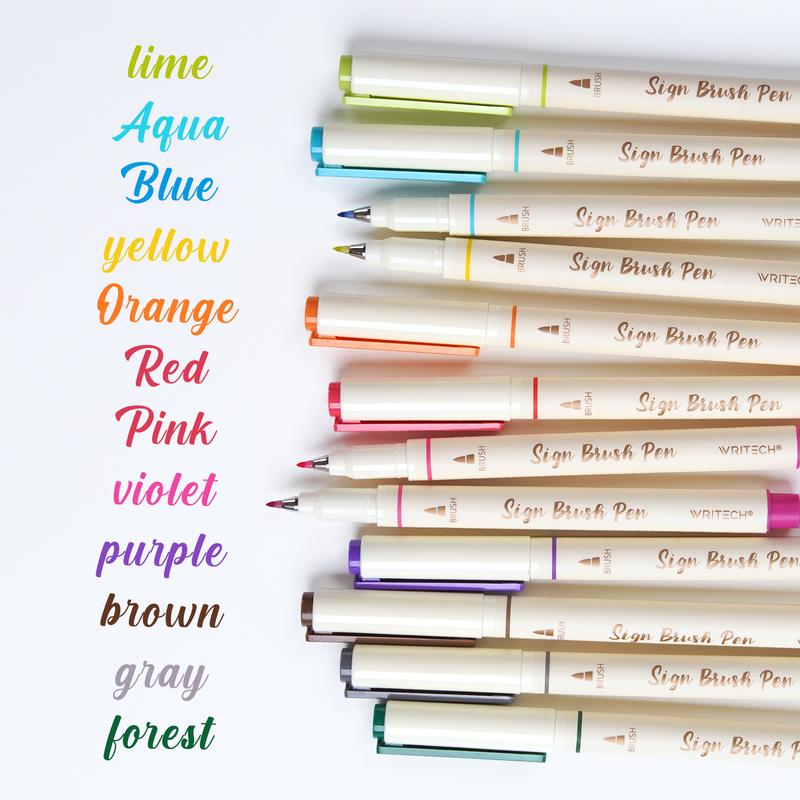 lime
Aqua
Blue
yellow
Orange
Red
Pink
violet
purple
brown
gray
forest
BRUSH Sign Brush Pen
BRUSH Sign Brush Pen
BRUSH Sign Brush Pen WRITEC
BRUSH Sign Brush Pen WRITEC
BRUSH Sign Brush Pen
BRUSH Sign Brush Pen
BRUSH Sign Brush Pen WRITECH®
BRUSH Sign Brush Pen WRITECH®
BRUSH Sign Brush Pen
BRUSH Sign Brush Pen
BRUSH Sign Brush Pen
BRUSH Sign Brush P